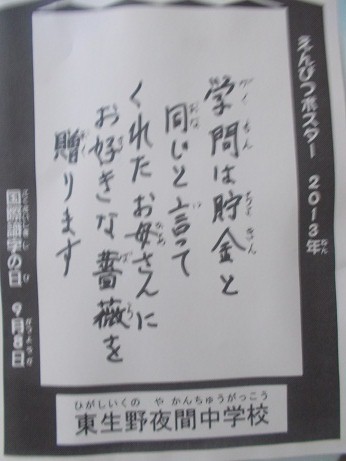 えんぴつポスター 2013年
学問は貯金と
同じと言って
くれたお母さんに
お好きな薔薇を
贈ります
国際識字の日 9月8日
ひがしいくの や かんちゅうがっこう
東生野夜間中学校